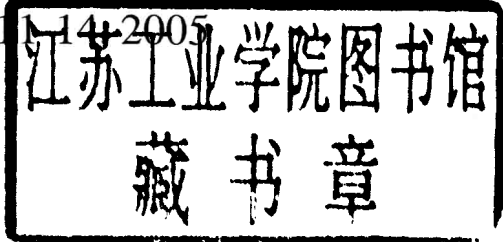 11 14 2005
江苏工业学院图书馆
藏书章